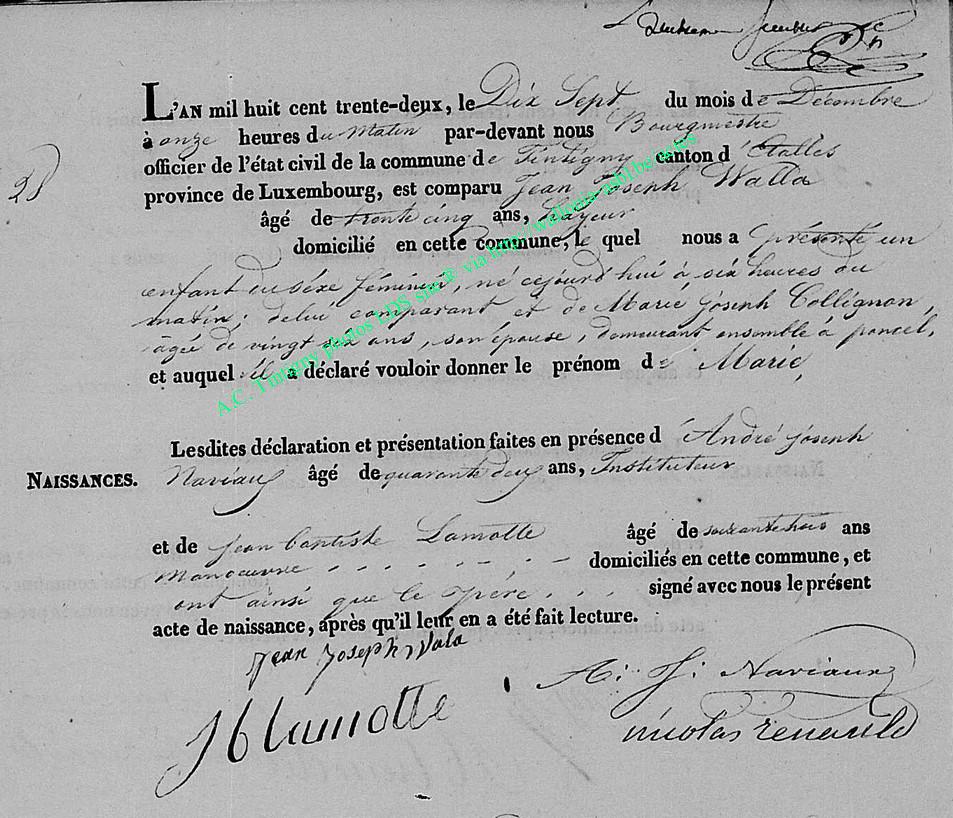 L'AN mil huit cent trente-deux, le Dix Sept du mois de Décembre
à onze heures du Matin par-devant nous Bourgmestre
officier de l'état civil de la commune de Tintigny canton d'Étalles
province de Luxembourg, est comparu Jean Joseph Walla
âgé de trente cinq ans,
domicilié en cette commune, le quel nous a présenté un
enfant du séxe féminin, né cejourd'hui à six heures du
matin, delui comparant et de Marie joseph Collignon,
âgée de vingt six ans, son épouse, demeurant ensemble à poncel,
et auquel il a déclaré vouloir donner le prénom de Marie,
Lesdites déclaration et présentation faites en présence d'André joseph
NAISSANCES. Naviaux âgé de quarante deux ans, Instituteur
et de jean baptiste Lamotte âgé de soixante trois ans
manoeuvre domiciliés en cette commune, et
ont ainsi que le père signé avec nous le présent
acte de naissance, après qu'il leur en a été fait lecture.
jean joseph Wala
A. J. Naviaux
J b Lamotte
nicolas renauld
A.C. Tintigny photos LDS site ® via http://wallonia-asbl.be/actes